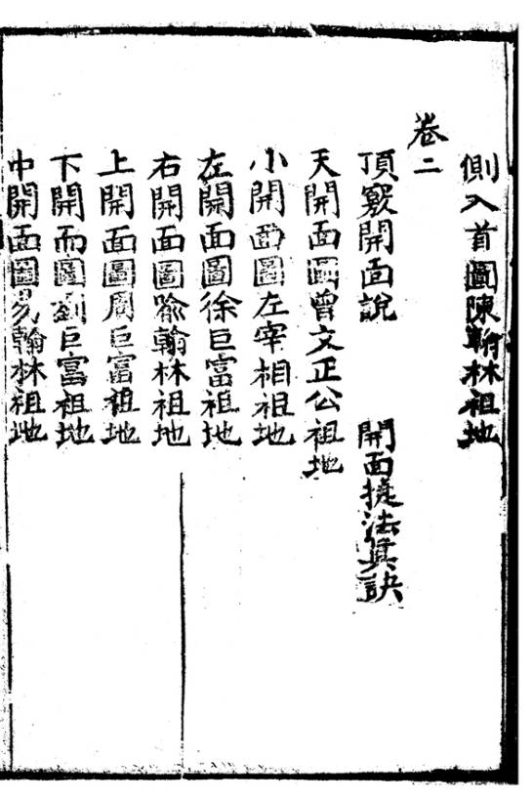 側入首圖陳翰林祖地
卷二
頂竅開面說　開面捷法真訣
天開面圖曾文正公祖地
小開面圖左宰相祖地
左開面圖徐巨富祖地
右開面圖喻翰林祖地
上開面圖周巨富祖地
下開面圖劉巨富祖地
中開面圖易翰林祖地